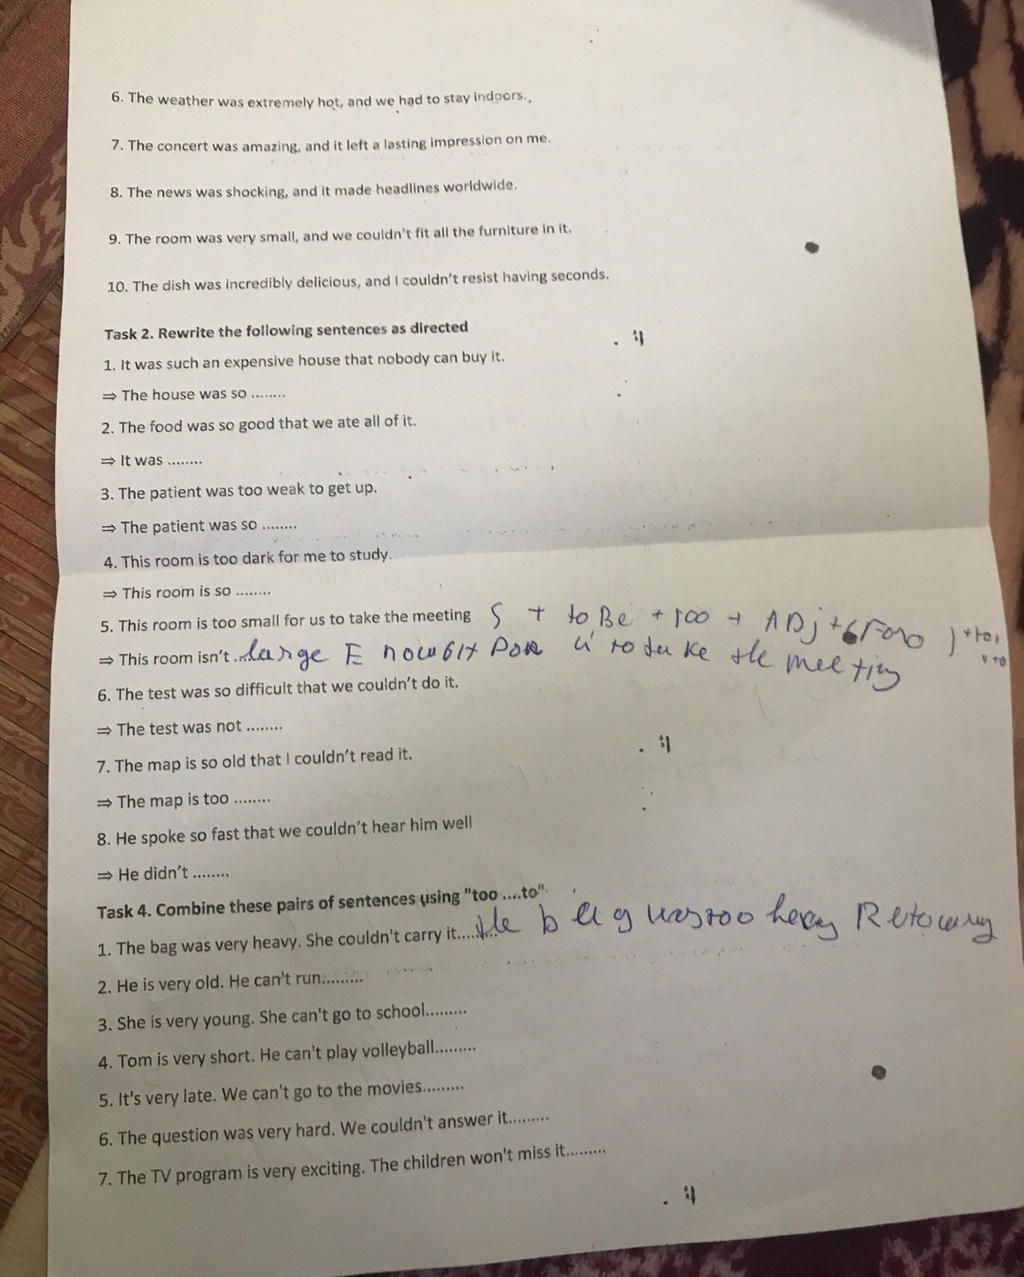 6. The weather was extremely hot, and we had to stay indoors.
7. The concert was amazing, and it left a lasting impression on me.
8. The news was shocking, and it made headlines worldwide.
9. The room was very small, and we couldn't fit all the furniture in it.
10. The dish was incredibly delicious, and I couldn't resist having seconds.
Task 2. Rewrite the following sentences as directed
1. It was such an expensive house that nobody can buy it.
⇒ The house was so ........
2. The food was so good that we ate all of it.
⇒ It was ........
3. The patient was too weak to get up.
⇒ The patient was so ........
4. This room is too dark for me to study.
⇒ This room is so ........
5. This room is too small for us to take the meeting S + to Be + too + ADj +
⇒ This room isn't ...large to the meeting
6. The test was so difficult that we couldn't do it.
⇒ The test was not ........
7. The map is so old that I couldn't read it.
⇒ The map is too ........
8. He spoke so fast that we couldn't hear him well
⇒ He didn't ........
Task 4. Combine these pairs of sentences using "too ....to".
1. The bag was very heavy. She couldn't carry it........ the bag was too
2. He is very old. He can't run.........
3. She is very young. She can't go to school.........
4. Tom is very short. He can't play volleyball.........
5. It's very late. We can't go to the movies.........
6. The question was very hard. We couldn't answer it.........
7. The TV program is very exciting. The children won't miss it.........